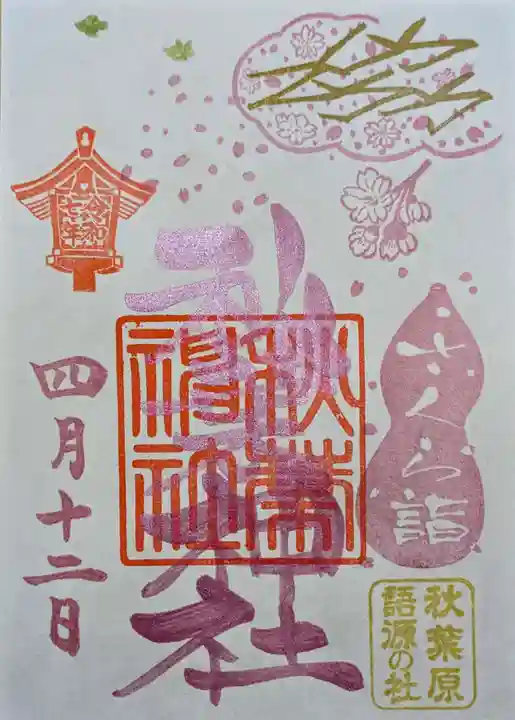 さくら詣
秋葉原
語源の社
秋葉神社
秋葉神社
令和
七年
四月十二日